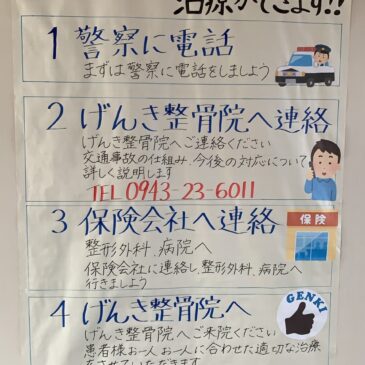 治療ができます!!
1 警察に電話
まずは警察に電話をしましょう
2 げんき整骨院へ連絡
げんき整骨院へご連絡ください
交通事故の仕組み、今後の対応について
詳しく説明します
TEL 0943-23-6011
3 保険会社へ連絡
保険
整形外科、病院へ
保険会社に連絡し、整形外科、病院へ
行きましょう
4 げんき整骨院へ
GENKI
げんき整骨院へご来院ください
患者様お一人お一人に合わせた適切な治療
をさせていただきます